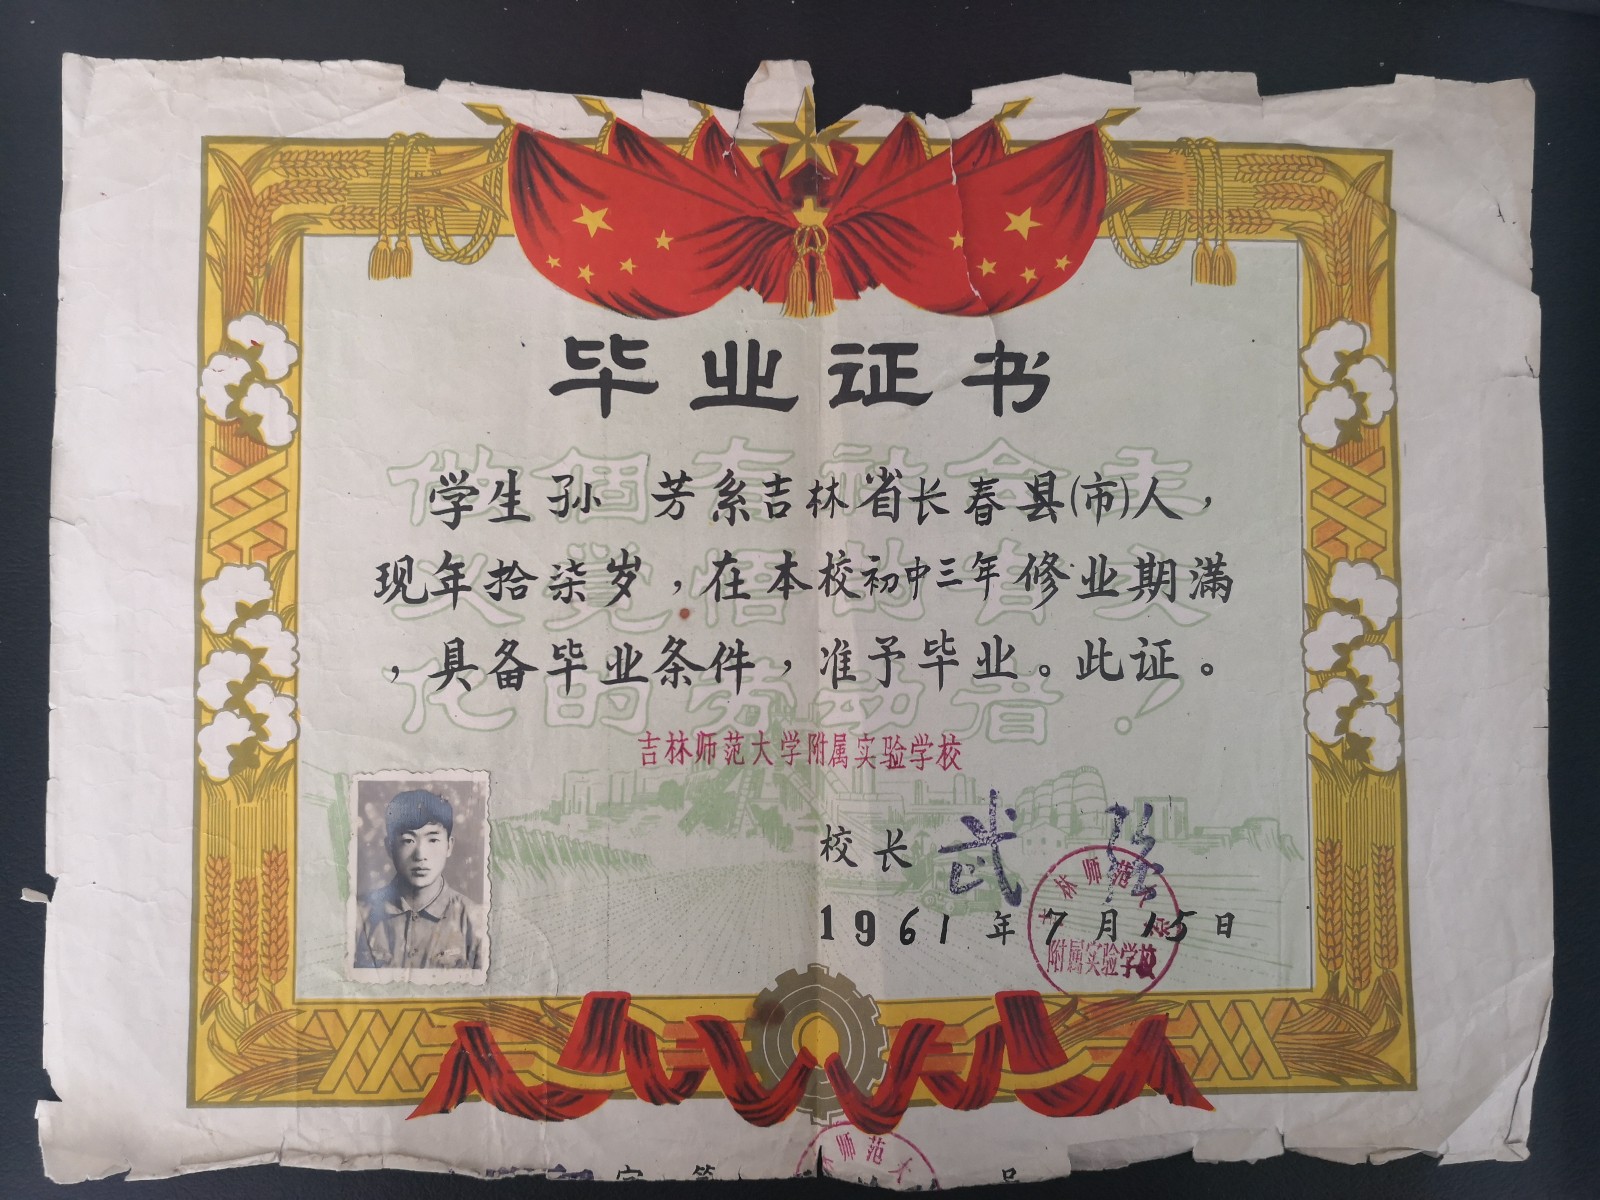 毕业证书
做個有社会主
义觉悟的有文
化的劳动者！
学生孙 芳系吉林省长春县(市)人，
现年拾柒岁，在本校初中三年修业期满
，具备毕业条件，准予毕业。此证。
吉林师范大学附属实验学校
校长 武
1961年7月15日
林师范
附属实验学校
师范大
字第 号